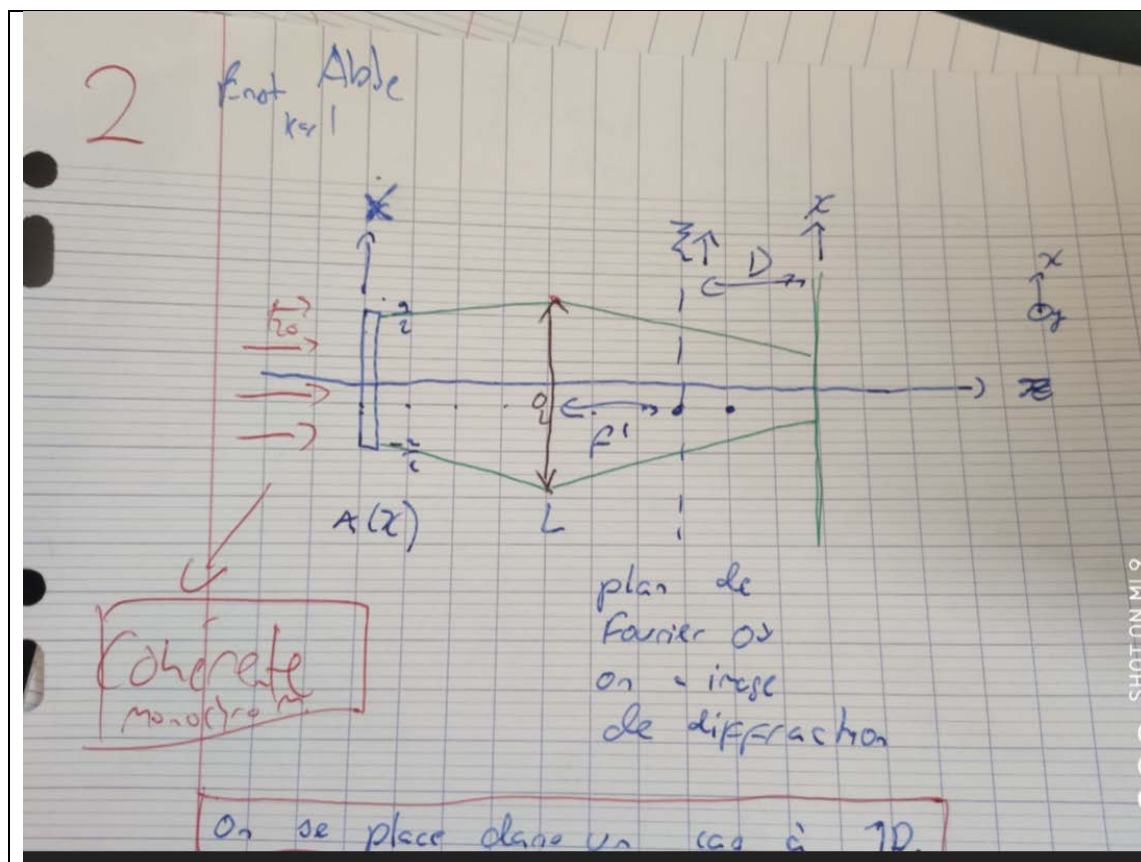 2
Ernst Abbe
X
ξ
D
x
x
y
a/2
z
-a/2
f'
A(x)
L
plan de
Fourier où
on a image
de diffraction
Cohérente
monochrom.
On se place dans un cas à 1D.
SHOT ON MI 9